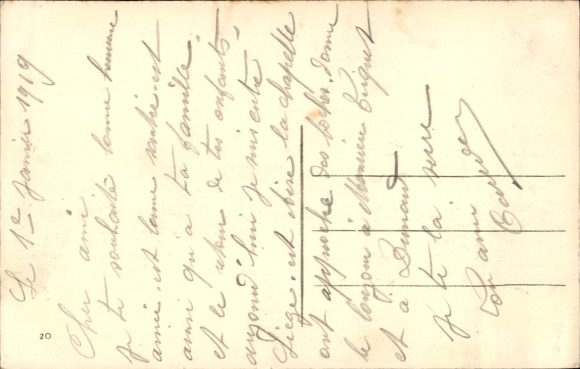 Le 1er Janvier 1919
Cher ami
je te souhaite bonne heureuse
année et bonne santé et
ainsi qu'a ta famille.
et le retour de tes enfants.
aujourd'hui je suis entre
Liége et Aise la chapelle
ont approche des boches. donne
le bonjour à Monsieur
et a Durand
je te la serre
Ton ami
20